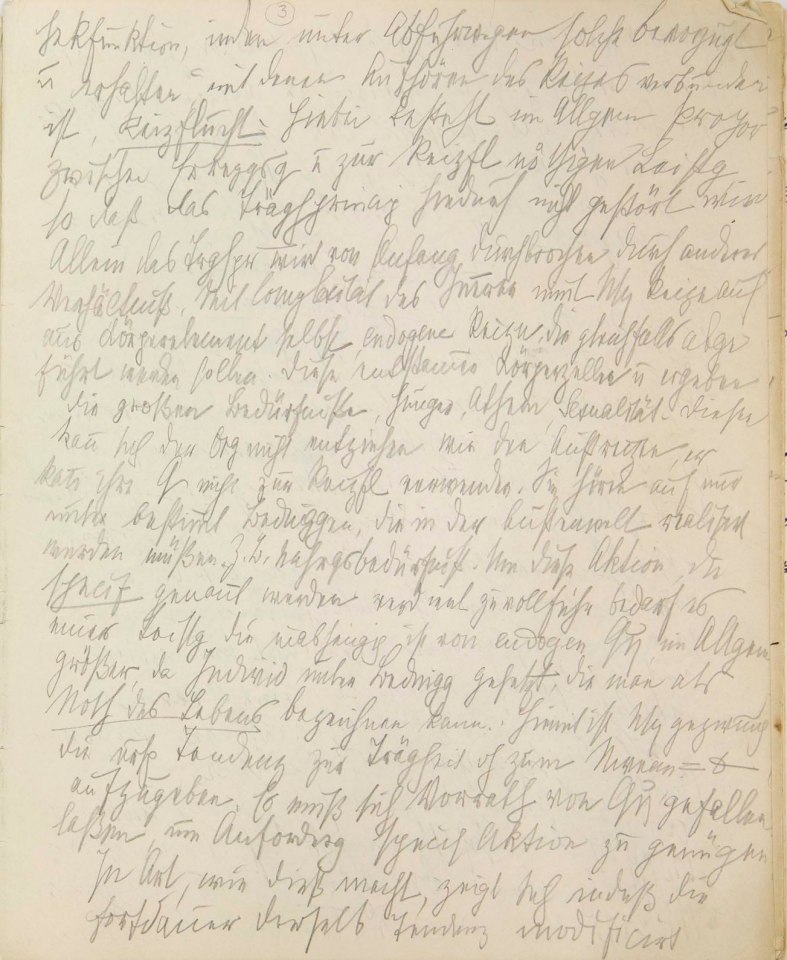 3
Sekfunktion, indem unter Abfuhrwegen solche bevorzugt
u erhalten, mit denen Aufhören des Reizes verbunden
ist, Reizflucht. Hiebei besteht im Allgem Propor
zwischen Erreggsq u zur Reizfl nöthigen Leistg
so daß das Träghprincip hiedurch nicht gestört wird
Allein das Trghpr wird von Anfang durchbrochen durch anderes
Verhältniß. Mit Complexität des Inneren nimt Nsy Reize auf
aus Körperelement selbst, endogene Reize, die gleichfalls abge
führt werden sollen. Diese entstamen Körperzellen u ergeben
die großen Bedürfniße, Hunger, Athem, Sexualität. Diesen
kan sich der Org nicht entziehen wie den Außreizen, er
kan ihre Q nicht zur Reizfl verwenden. Sie hören auf nur
unter bestimt Bedinggen, die in der Außenwelt realisirt
werden müßen. Z.B. Nahrgsbedürfniß. Um diese Aktion die
specif genant werden verdient zu vollführ bedarf es
einer Leistg die unabhängig ist von endogen Qη im Allgem
größer, da Individ unter Bedingg gesetzt, die man als
Noth des Lebens bezeichnen kann. Hiemit ist Nsy gezwung
die urspr Tendenz zur Trägheit dh zum Niveau = 0
aufzugeben. Es muß sich Vorrath von Qη gefallen
laßen, um Anforderg specif Aktion zu genügen
In Art, wie dieß macht, zeigt sich indeß die
Fortdauer derselb Tendenz modificirt